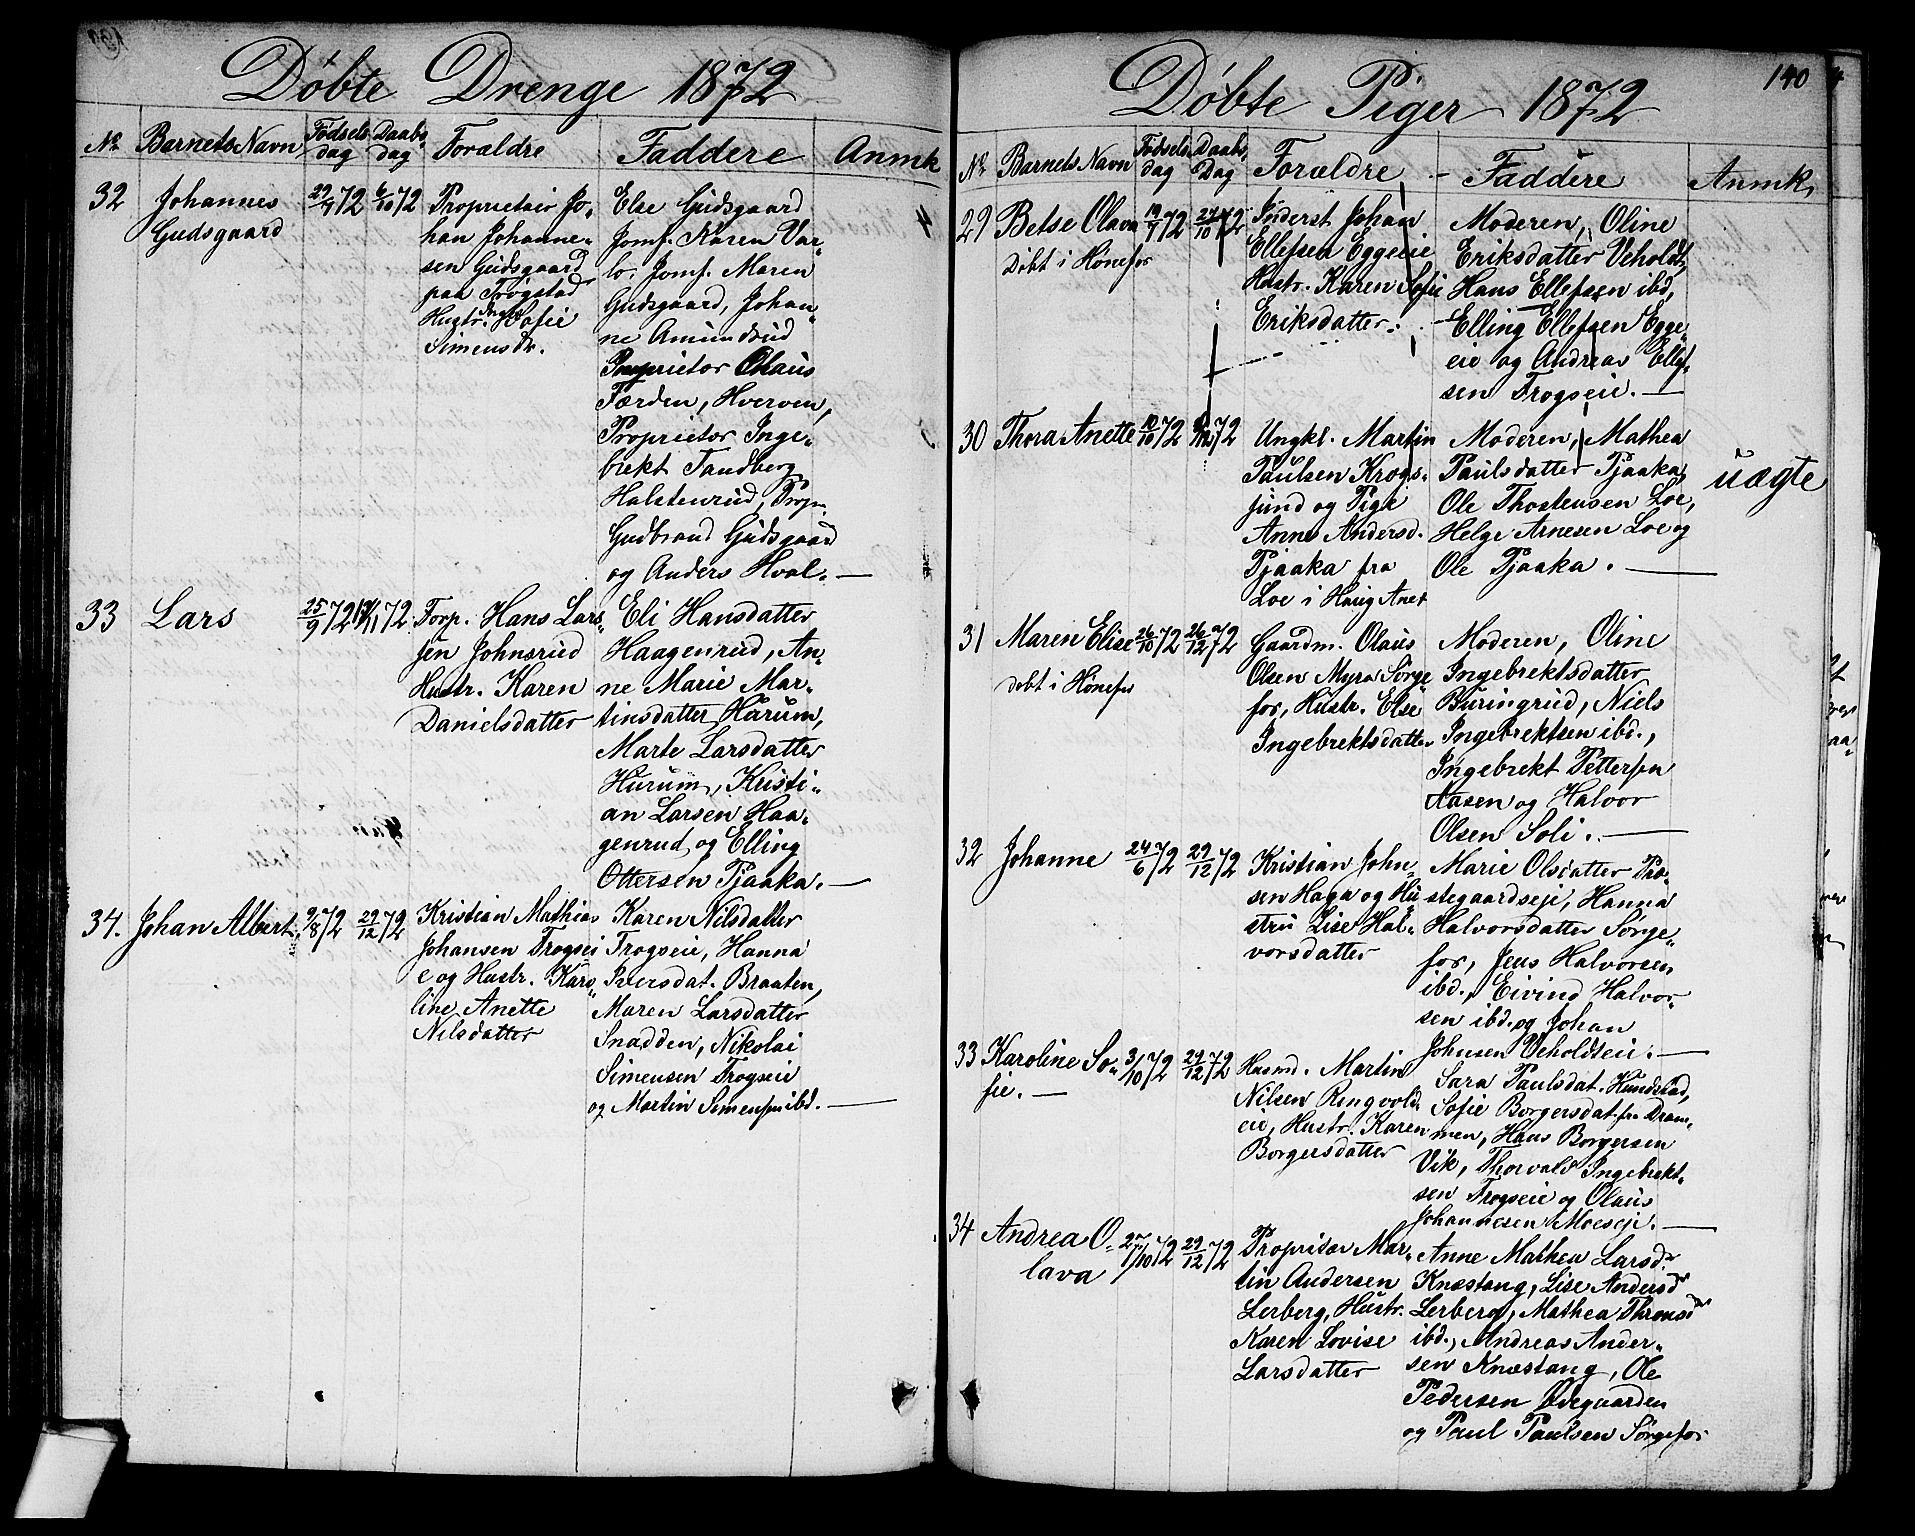 Døbte Drenge 1872
No Barnets Navn Fødsels dag Daabs dag Forældre Faddere Anmk
32 Johannes Gudsgaard 29/7 72 6/10 72
Proprietair Jo-
han Johanne-
sen Gudsgaard
paa Trøgstad
Hustr. Sofie
Simensdr.
Else Gudsgaard
Jomf. Karen Var-
lo, Jomf. Maren
Gudsgaard, Johan-
ne Amundsrud
Proprietør Olaus
Færden, Hverven,
Proprietør Inge-
brekt Tandberg
Halstenrud, Propr.
Gudbrand Gudsgaard
og Anders Hval. —
33 Lars 25/9 72 /11 72
Torp. Hans Lars-
sen Johnsrud
Hustr. Karen
Danielsdatter
Eli Hansdatter
Haagenrud, An-
ne Marie Mar-
tinsdatter Hurum,
Marte Larsdatter
Hurum, Kristi-
an Larsen Haa-
genrud og Elling
Ottersen Tjaaka. —
34. Johan Albert 9/8 72 29/12 72
Kristian Mathias
Johansen Trogsei
e og Hustr. Karo-
line Anette
Nilsdatter
Karen Nilsdatter
Trogseie, Hanna
Iversdat. Braaten,
Maren Larsdatter
Snadden, Nikolai
Simensen Trogseie
og Martin Simensen ibd. —
140
Døbte Piger 1872
No Barnets Navn Fødsels dag Daabs Dag Forældre Faddere Anmk,
29 Betse Olava 19/7 72 27/10 72
Døbt i Hønefos
Inderst Johan
Ellefsen Eggeeie
Hustr. Karen Sofie
Eriksdatter.
Moderen, Oline
Eriksdatter Veholdt,
Hans Ellefsen ibd,
Elling Ellefsen Egge-
eie og Andreas Ellef-
sen Trogseie. —
30 Thora Anette 10/10 72 72
Ungkl. Martin
Paulsen Krogs-
sund og Pige
Anne Andersd.
Tjaaka fra
Loe i Haug Anex
Moderen, Mathea
Paulsdatter Tjaaka,
Ole Thostensen Loe,
Helge Arnesen Loe og
Ole Tjaaka. —
uægte
31 Maren Elise 26/10 72 26/12 72
døbt i Hønefos
Gaardm. Olaus
Olsen Myra Sørge-
for, Hustr. Else
Ingebrektsdatter
Moderen, Oline
Ingebrektsdatter
Buringrud, Niels
Ingebrektsen ibd.,
Ingebrekt Pettersen
Aasen og Halvor
Olsen Soli. —
32 Johanne 24/6 72 29/12 72
Kristian John-
sen Haga og Hu
stru Lise Hal-
vorsdatter
Marie Olsdatter Præ-
stegaardseje, Hanna
Halvorsdatter Sørge-
for, Jens Halvorsen
ibd., Eivind Halvor-
sen ibd. og Johan
Johnsen Veholdteie. —
33 Karoline So-
fie. — 3/10 72 29/12 72
Husmd. Martin
Nilsen Ringvold-
eie, Hustr. Karen
Borgersdatter
Sara Paulsdat. Hundstad,
Sofie Borgersdat. fra Dram-
men, Hans Borgersen
Vik, Thorvald Ingebrekt-
sen Trogseie og Olaus
Johannesen Moeseje. —
34 Andrea O-
lava 27/10 72 29/12 72
Propritær Mar-
tin Andersen
Lerberg, Hustr.
Karen Lovise
Larsdatter
Anne Mathea Larsdr
Knæstang, Lise Andersdr
Lerberg, Mathea Thronsdr
ibd., Andreas Ander-
sen Knæstang, Ole
Pedersen Øvegaarden
og Paul Paulsen Sørgefor